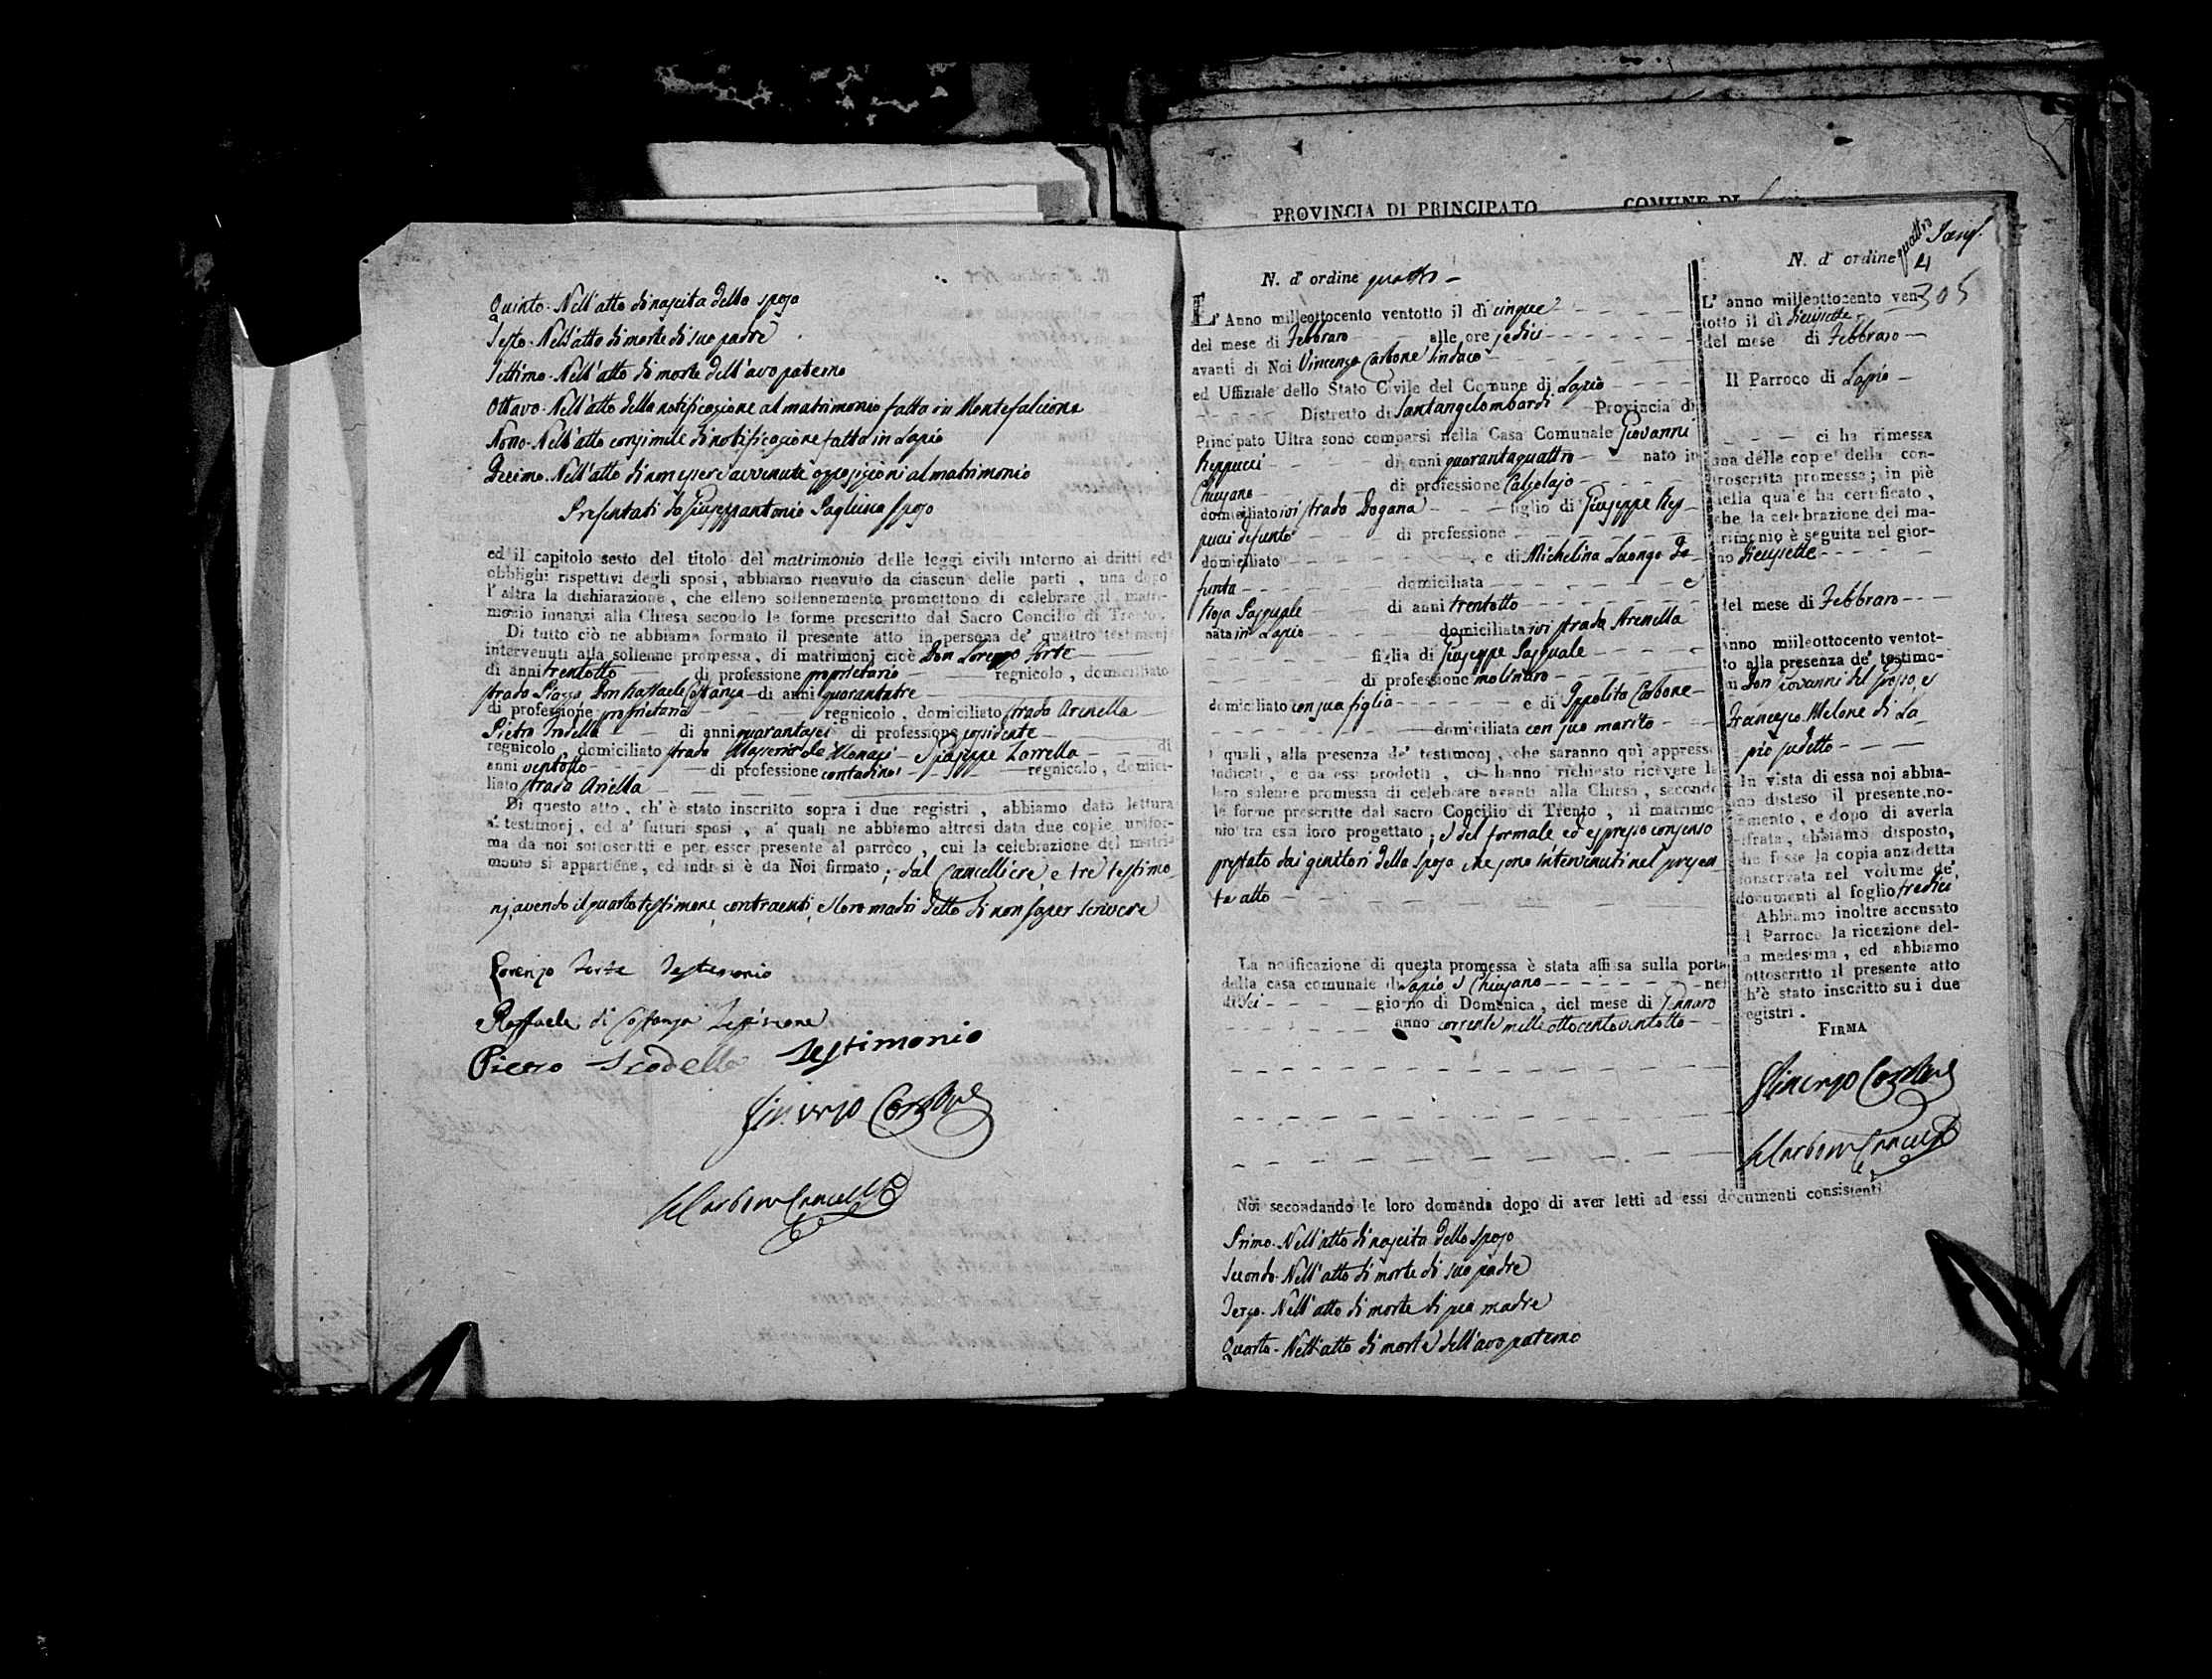 Quinto. Nell'atto di nascita dello sposo
Sesto. Nell'atto di morte di suo padre
Settimo. Nell'atto di morte dell'avo paterno
Ottavo. Nell'atto della notificazione al matrimonio fatta in Montefalcione
Nono. Nell'atto consimile di notificazione fatta in Lapio
Decimo. Nell'atto di non essere avvenute opposizioni al matrimonio
Presentati da Giuseppantonio Pagliuca sposo
ed il capitolo sesto del titolo del matrimonio delle leggi civili intorno ai dritti ed
obblighi rispettivi degli sposi, abbiamo ricevuto da ciascun delle parti, una dopo
l'altra la dichiarazione, che elleno sollennemente promettono di celebrare il matri-
monio innanzi alla Chiesa secondo le forme prescritto dal Sacro Concilio di Trento.
Di tutto ciò ne abbiamo formato il presente atto in persona de' quattro testimonj
intervenuti alla sollenne promessa, di matrimonj cioè Don Lorenzo Forte
di anni trentotto di professione proprietario regnicolo, domiciliato
strada Piazza Don Raffaele Costanza di anni quarantatre
di professione proprietario regnicolo, domiciliato strada Arenella
Pietro di anni quarantasei di professione possidente
regnicolo, domiciliato strada Masseria de Monaci Giuseppe Zarrella di
anni ventotto di professione contadino regnicolo, domici-
liato strada Ariella
Di questo atto, ch'è stato inscritto sopra i due registri, abbiamo dato lettura
a' testimonj, ed a' futuri sposi, a' quali ne abbiamo altresì data due copie unifor-
ma da noi sottoscritti e per esser presente al parroco, cui la celebrazione del matri-
monio si appartiene, ed indi si è da Noi firmato; dal Cancelliere, e tre testimo-
nj, avendo il quarto testimone, contraenti, e loro madri detto di non saper scrivere
Lorenzo Forte Testimonio
Raffaele di Costanza Testimone
Pietro Testimonio
Vincenzo Carbone
Carbone Cancell
PROVINCIA DI PRINCIPATO COMUNE DI
N. d'ordine quattro
L'Anno milleottocento ventotto il dì cinque
del mese di Febbraro alle ore sedici
avanti di Noi Vincenzo Carbone Sindaco
ed Uffiziale dello Stato Civile del Comune di Lapio
Distretto di Santangelombardi Provincia di
Principato Ultra sono comparsi nella Casa Comunale Giovanni
Reppucci di anni quarantaquattro nato in
Chiusano di professione Calzolajo
domiciliato ivi strada Dogana figlio di Giuseppe Rep-
pucci defunto di professione
domiciliato e di Michelina Luongo De-
funta domiciliata e
Rosa Pasquale di anni trentotto
nata in Lapio domiciliata ivi strada Arenella
figlia di Giuseppe Pasquale
di professione molinaro
domiciliato con sua figlia e di Ippolita Carbone
domiciliata con suo marito
i quali, alla presenza de' testimonj, che saranno quì appresso
indicati, e da essi prodotti, ci hanno richiesto ricevere la
loro solenne promessa di celebrare avanti alla Chiesa, secondo
le forme prescritte dal sacro Concilio di Trento, il matrimo-
nio tra essi loro progettato; e del formale, ed espresso consenso
prestato dai genitori della sposa che sono intervenuti nel presen-
te atto
La notificazione di questa promessa è stata affissa sulla porta
della casa comunale di Lapio e Chiusano nel
dieci giorno di Domenica, del mese di Gennaro
anno corrente mille ottocentoventotto
N. d'ordine quattro
4
305
L'anno milleottocento ven-
totto il dì diecisette
del mese di Febbraro
Il Parroco di Lapio
ci ha rimessa
una delle copie della con-
troscritta promessa; in piè
della quale ha certificato,
che la celebrazione del ma-
trimonio è seguita nel gior-
no diecisette
del mese di Febbraro
anno milleottocento ventot-
to alla presenza de' testimo-
nj Don Giovanni del Grosso, e
Francesco Melone di La-
pio sudetto
In vista di essa noi abbia-
mo disteso il presente no-
tamento, e dopo di averla
cifrata, abbiamo disposto,
che fosse la copia anzidetta
conservata nel volume de'
documenti al foglio tredici
Abbiamo inoltre accusato
al Parroco la ricezione del-
la medesima, ed abbiamo
sottoscritto il presente atto
ch'è stato inscritto su i due
registri.
FIRMA
Vincenzo Carbone
Carbone Cancell
Noi secondando le loro domande dopo di aver letti ad essi documenti consistenti
Primo. Nell'atto di nascita dello sposo
Secondo. Nell'atto di morte di suo padre
Terzo. Nell'atto di morte di sua madre
Quarto. Nell'atto di morte dell'avo paterno